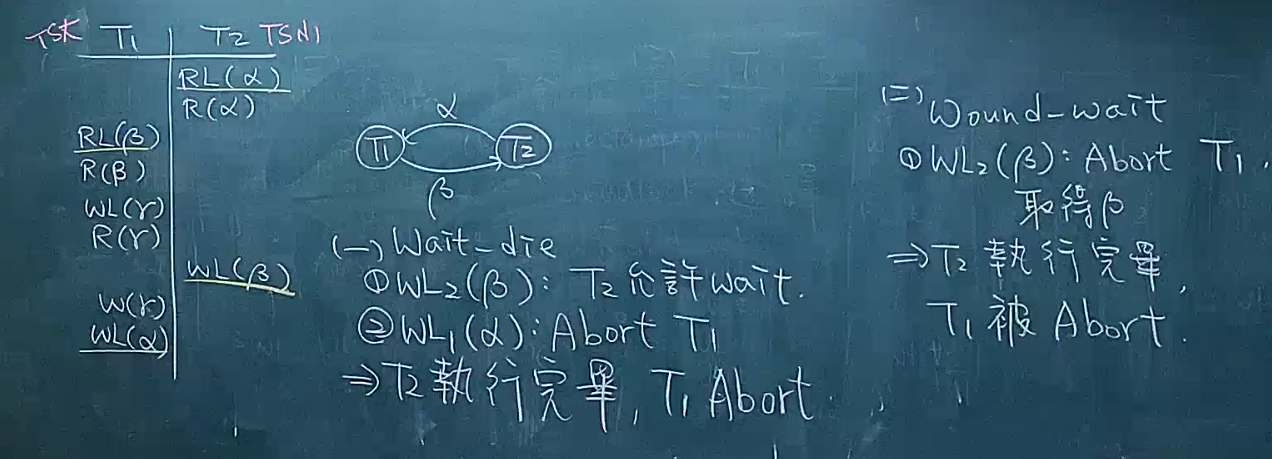 TSK T1 T2 TSN1
RL(α)
R(α)
RL(β)
R(β)
WL(r)
R(r)
WL(β)
W(r)
WL(α)
α
T1 T2
β
(一) Wait-die
①WL2(β): T2 允許wait.
②WL1(α): Abort T1
⇒T2 執行完畢, T1 Abort
(二) Wound-wait
①WL2(β): Abort T1,
取得β
⇒T2 執行完畢,
T1 被 Abort.